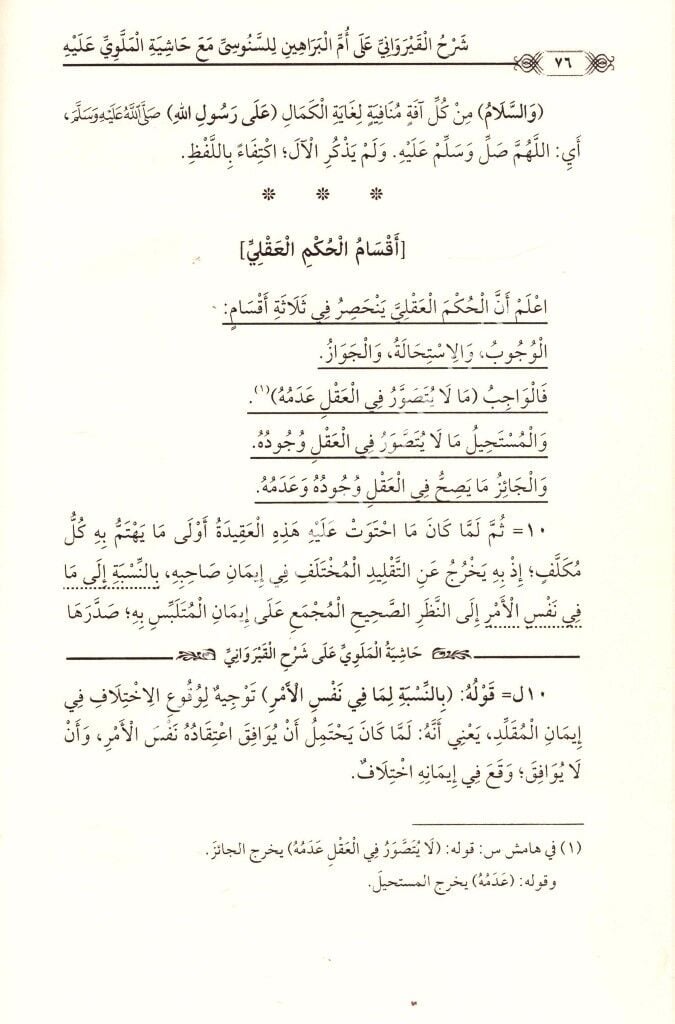 شَرْحُ الْقَيْرَوَانِيِّ عَلَى أُمِّ الْبَرَاهِينِ لِلسَّنُوسِيِّ مَعَ حَاشِيَةِ الْمَلَّوِيِّ عَلَيْهِ
٧٦
(وَالسَّلَامُ) مِنْ كُلِّ آفَةٍ مُنَافِيَةٍ لِغَايَةِ الْكَمَالِ (عَلَى رَسُولِ اللهِ) صَلَّىاللَّهُعَلَيْهِوَسَلَّمَ،
أَيِ: اللَّهُمَّ صَلِّ وَسَلِّمْ عَلَيْهِ. وَلَمْ يَذْكُرِ الْآلَ؛ اكْتِفَاءً بِاللَّفْظِ.
❊ ❊ ❊
[أَقْسَامُ الْحُكْمِ الْعَقْلِيِّ]
اعْلَمْ أَنَّ الْحُكْمَ الْعَقْلِيَّ يَنْحَصِرُ فِي ثَلَاثَةِ أَقْسَامٍ:
الْوُجُوبُ، وَالِاسْتِحَالَةُ، وَالْجَوَازُ.
فَالْوَاجِبُ (مَا لَا يُتَصَوَّرُ فِي الْعَقْلِ عَدَمُهُ)(١).
وَالْمُسْتَحِيلُ مَا لَا يُتَصَّوَرُ فِي الْعَقْلِ وُجُودُهُ.
وَالْجَائِزُ مَا يَصِحُّ فِي الْعَقْلِ وُجُودُهُ وَعَدَمُهُ.
١٠= ثُمَّ لَمَّا كَانَ مَا احْتَوَتْ عَلَيْهِ هَذِهِ الْعَقِيدَةُ أَوْلَى مَا يَهْتَمُّ بِهِ كُلُّ
مُكَلَّفٍ؛ إِذْ بِهِ يَخْرُجُ عَنِ التَّقْلِيدِ الْمُخْتَلَفِ فِي إِيمَانِ صَاحِبِهِ، بِالنِّسْبَةِ إِلَى مَا
فِي نَفْسِ الْأَمْرِ إِلَى النَّظَرِ الصَّحِيحِ الْمُجْمَعِ عَلَى إِيمَانِ الْمُتَلَبِّسِ بِهِ؛ صَدَّرَهَا
حَاشِيَةُ الْمَلَّوِيِّ عَلَى شَرْحِ الْقَيْرَوَانِيِّ
١٠ل= قَوْلُهُ: (بِالنِّسْبَةِ لِمَا فِي نَفْسِ الْأَمْرِ) تَوْجِيهٌ لِوُقُوعِ الِاخْتِلَافِ فِي
إِيمَانِ الْمُقَلِّدِ، يَعْنِي أَنَّهُ: لَمَّا كَانَ يَحْتَمِلُ أَنْ يُوَافِقَ اعْتِقَادُهُ نَفْسَ الْأَمْرِ، وَأَنْ
لَا يُوَافِقَ؛ وَقَعَ فِي إِيمَانِهِ اخْتِلَافٌ.
(١) في هامش س: قوله: (لَا يُتَصَّوَرُ فِي الْعَقْلِ عَدَمُهُ) يخرج الجائزَ.
وقوله: (عَدَمُهُ) يخرج المستحيلَ.